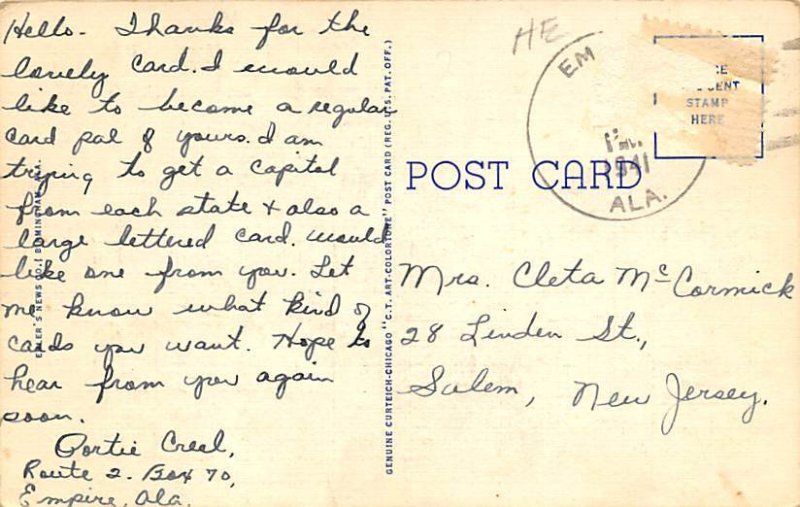 Hello. Thanks for the
lovely card. I would
like to become a regular
card pal of yours. I am
trying to get a capitol
from each state & also a
large lettered card. would
like one from you. Let
me know what kind of
cards you want. Hope to
hear from you again
soon.
Portie Creel,
Route 2. Box 70,
Empire, Ala.
NEWS CO., BIRMINGHAM, ALA.
GENUINE CURTEICH-CHICAGO "C.T. ART-COLORTONE" POST CARD (REG. U.S. PAT. OFF.)
HE
EM
1941
ALA.
STAMP
HERE
POST CARD
Mrs. Cleta McCormick
28 Linden St.,
Salem, New Jersey.